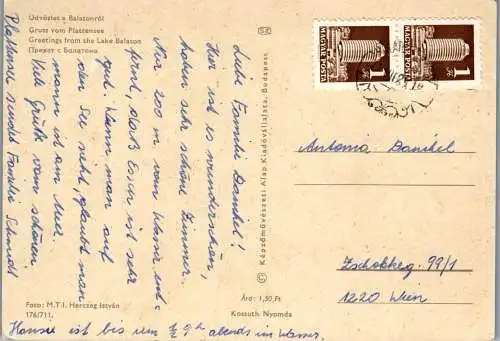 Üdvözlet a Balatonról
Gruss vom Plattensee
Greetings from the Lake Balaton
Привет с Болатона
Liebe Familie Danihel!
Hier ist es wunderschön,
haben sehr schöne Zimmer.
Nur 200 m vom Wasser ent-
fernt, das Essen ist sehr
gut. Wenn man auf
den See sieht, glaubt man
man ist am Meer.
Viele Grüße vom schönen
Plattensee sendet Familie Schmidt
Hannes ist bis um ½ 9h abends im Wasser.
Foto: M.T.I. Herczeg István
176/711.
Képzőművészeti Alap Kiadóvállalata, Budapest
Ára: 1,50 Ft
Kossuth Nyomda
MAGYAR POSTA
1
MAGYAR POSTA
1
Antonia Danihel
Zschokkeg. 99/1
1220 Wien